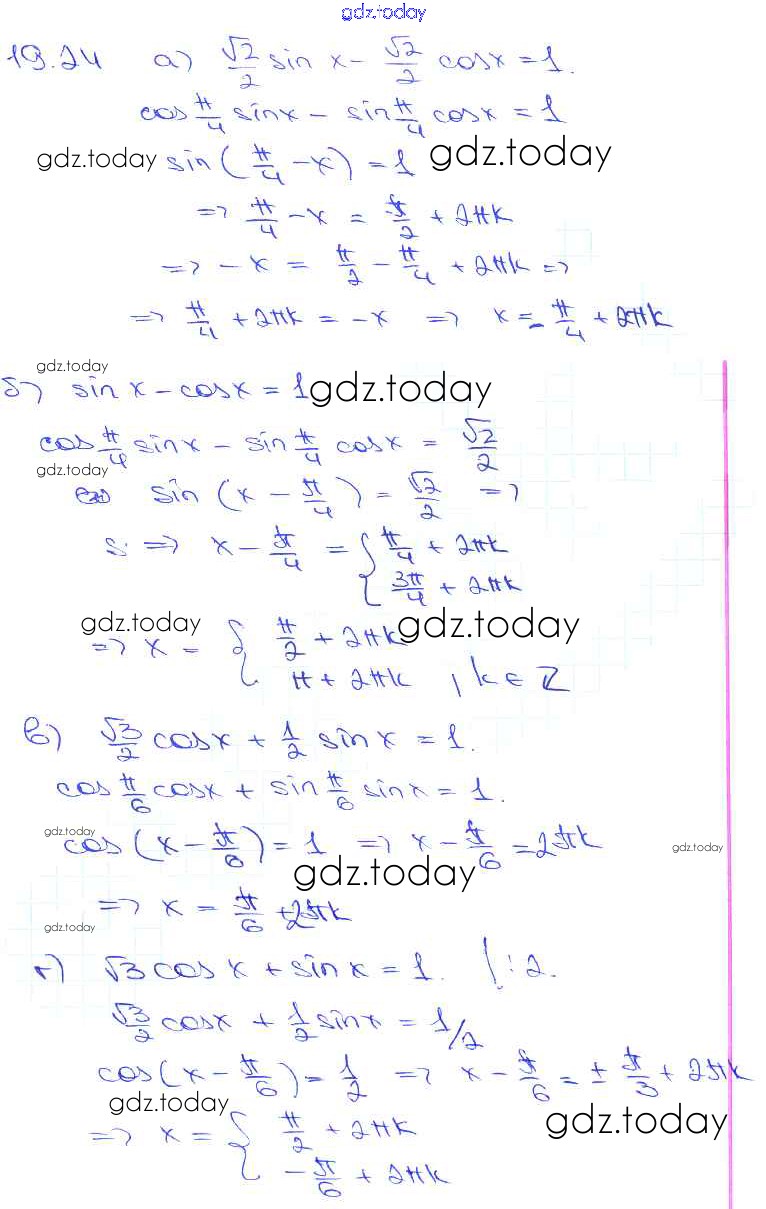 gdz.today
19.24 а) √2/2 sin x - √2/2 cosx = 1.
cos π/4 sinx - sin π/4 cosx = 1
gdz.today sin(π/4 - x) = 1 gdz.today
=> π/4 - x = π/2 + 2πk
=> - x = π/2 - π/4 + 2πk =>
=> π/4 + 2πk = -x => x = - π/4 + 2πk
gdz.today
б) sin x - cosx = 1 gdz.today
cos π/4 sinx - sin π/4 cosx = √2/2
gdz.today
sin (x - π/4) = √2/2 =>
=> x - π/4 = { π/4 + 2πk
3π/4 + 2πk
gdz.today gdz.today
=> x = { π/2 + 2πk
π + 2πk , k ∈ Z
в) √3/2 cosx + 1/2 sin x = 1.
cos π/6 cosx + sin π/6 sinx = 1.
gdz.today
cos (x - π/6) = 1 => x - π/6 = 2πk gdz.today
gdz.today
=> x = π/6 + 2πk
gdz.today
г) √3 cos x + sinx = 1. |:2.
√3/2 cosx + 1/2 sinx = 1/2
cos(x - π/6) = 1/2 => x - π/6 = ± π/3 + 2πk
gdz.today gdz.today
=> x = { π/2 + 2πk
- π/6 + 2πk